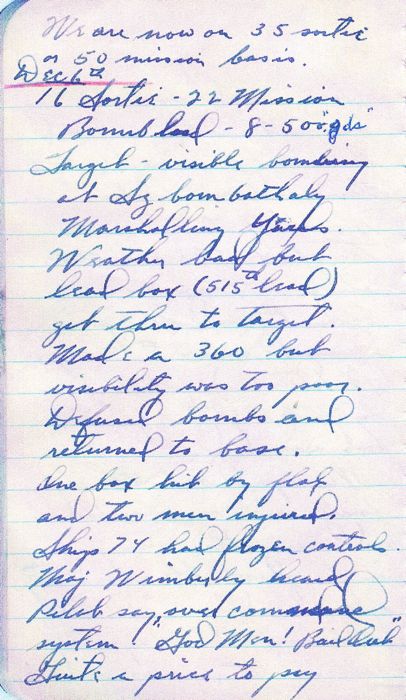 We are now on 35 sortie
or 50 mission basis.
Dec 6th
16 Sortie - 22 Mission
Bombload - 8-500 "gds"
Target - visible bombing
at Szombathaly
Marshalling Yards.
Weather bad but
lead box (515th lead)
get thru to target.
Made a 360 but
visibility was too poor.
Defused bombs and
returned to base.
One box hit by flak
and two men injured.
Ships 74 had frozen controls.
Maj Wimberly heard
Pilot say over command
system "God Men! Bail Out"
Quite a price to pay